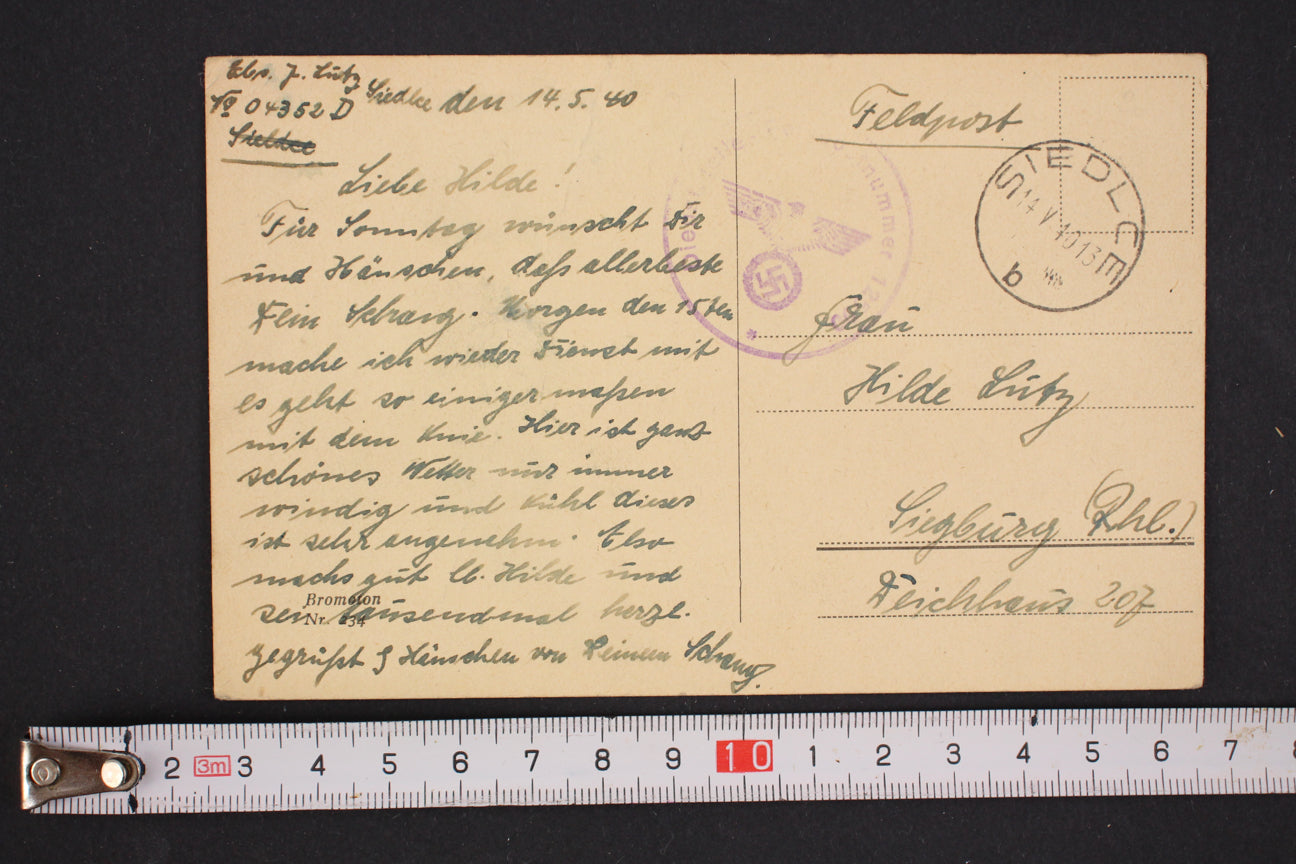 Abs. J. Lütz
No 04352 D
Siedlce
Siedlce den 14.5.40
Liebe Hilde!
Für Sonntag wünscht Dir
und Hänschen, daß allerbeste
Dein Schang. Morgen den 15ten
mache ich wieder Dienst mit
es geht so einigermaßen
mit dem Knie. Hier ist ganz
schönes Wetter nur immer
windig und kühl dieses
ist sehr angenehm. Also
machs gut lb. Hilde und
sei tausendmal herzl.
gegrüßt Hänschen von Deinem Schang.
Bromoton
Nr. 234
Feldpost
SIEDLCE
14 V 40 13
b
nummer
Frau
Hilde Lütz
Siegburg (Rhl.)
Deichhaus 207
2 3m 3 4 5 6 7 8 9 10 1 2 3 4 5 6 7 8